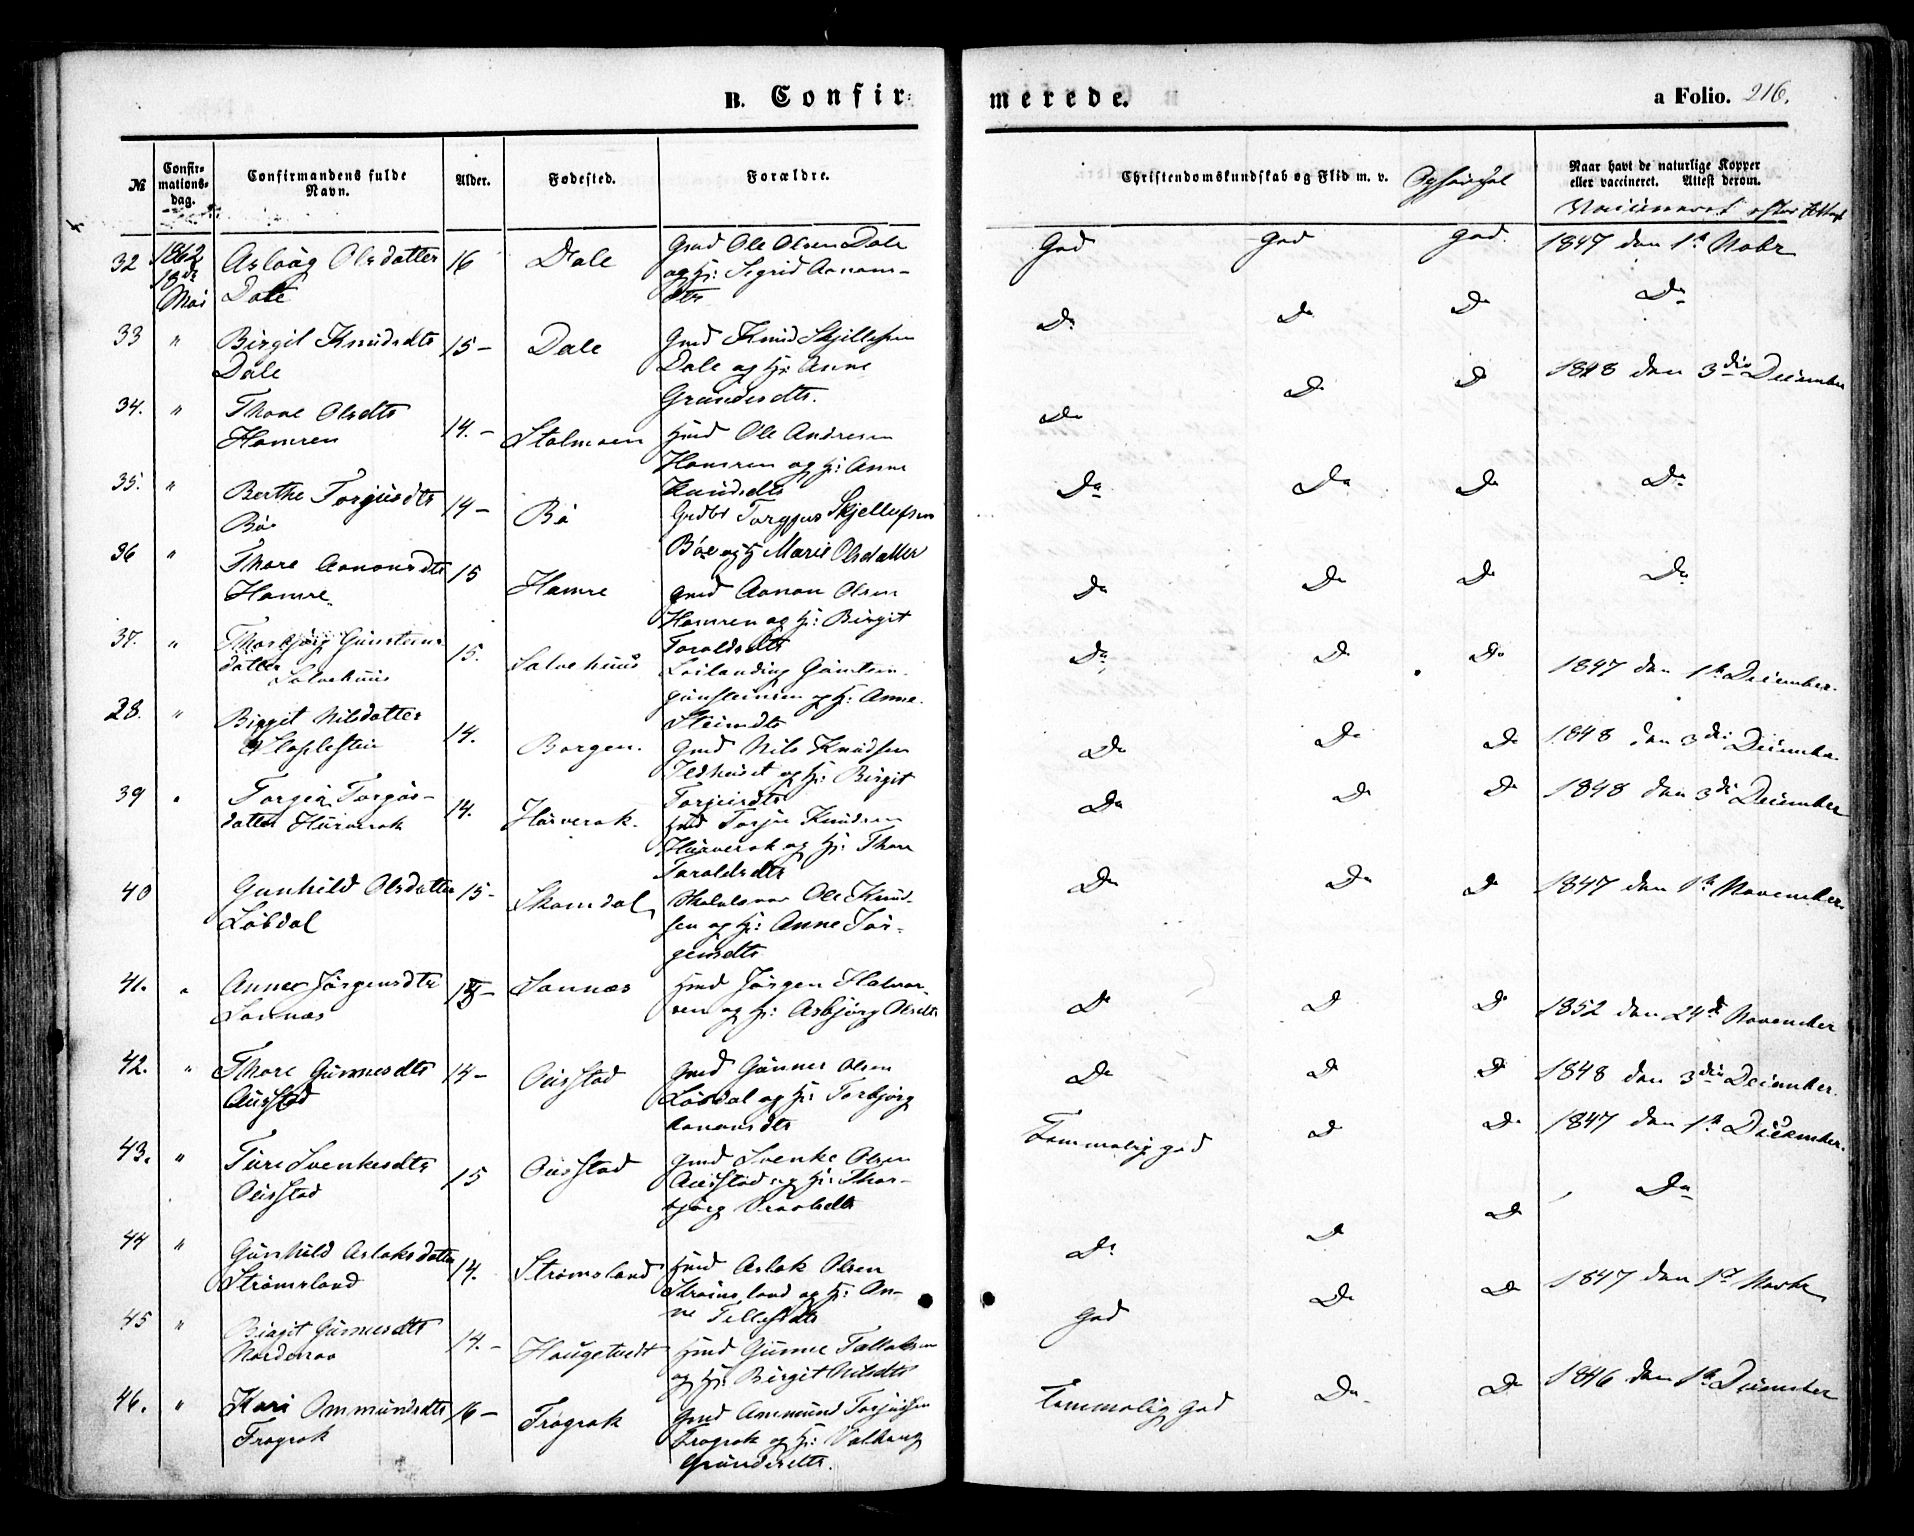 B. Confir- merede. a Folio. 216.
№ Confirmations-dag. Confirmandens fulde Navn. Alder. Fødested. Forældre. Christendomskundskab og Flid m. v. Opførsel Naar havt de naturlige Kopper eller vaccineret. Attest derom.
Vaccineret efter Attest
32 1862 18de Mai Aslaug Olsdatter Dale 16 Dale Gmd Ole Olsen Dale og Hj: Sigrid Aanons-dtr God God God. 1847 den 1ste Novbr
33 " Birgit Knudsdtr Dale 15- Dale Gmd Knud Skjellefsen Dale og Hj: Anne Grundesdtr. Do Do Do Do
34. " Thone Olsdtr Hamren 14.- Stalmoen Hmd Ole Andresen Hamren og Hj: Anne Knudsdtr Do Do Do 1848 den 3die December
35. " Berthe Torjusdtr Bøe 14- Bö Torgjus Skjellefsen Bøe og Hj Marie Olsdatter Do Do Do Do
36 " Thore Aanonsdtr Hamre. 15 Hamre Gmd Aanon Olsen Hamren og Hj: Birgit Taraldsdtr Do Do Do Do
37. " Thorbjørg Gunsteins datter Salvehuus 15. Salvehuus Gunsteinsen og Hj: Anne Steindtr Do Do Do 1847 den 1ste December.
28. " Birgit Nilsdatter 14. Borgen. Gmd Nils Knudsen og Hj: Birgit Torjusdtr Do Do Do 1848 den 3die December
39 " datter Hurverak 14. Hurverak. Hmd Torju Knudsen Hurverak og Hj: Thore Taraldsdtr Do Do Do 1848 den 3die December
40 Gunhild Olsdatter Løbdal 15- Skomdal Ole Knud-sen og Hj: Anne Jør-gensdtr Do Do Do 1847 den 1ste November.
41. " Anne Jørgensdtr Sannæs 15- Sannæs Hmd Jørgen Halvor-sen og Hj: Asbjørg Olsdtr Do Do Do 1852 den 24de November
42. " Thore Gunnersdtr Ousstad 14- Ousstad Gmd Gunner Olsen Løbdal og Hj: Torbjørg Aanonsdtr Do Do Do 1848 den 3die December.
43. " Ture Svenkesdtr Ousstad 15 Ousstad Gmd Svenke Olsen Ousstad og Hj: Thor-bjørg Temmelig god Do Do 1847 den 1ste December.
44 " Gunhild Aslaksdatter Strømsland 14. Strømsland Hmd Aslak Olsen Strømsland og Hj: An-ne Tellefsdtr Do Do Do Do
45 " Birgit Gunnersdtr 14.- Haugetvedt Hmd Gunner og Hj: Birgit Nilsdtr God Do Do 1847 den 1ste
46. " Kari Ommundsdtr Frograk 16- Frograk Gmd Ommund Torjusen Frograk og Hj: Valborg Grundesdtr. Temmelig god Do Do 1846 den 1ste December